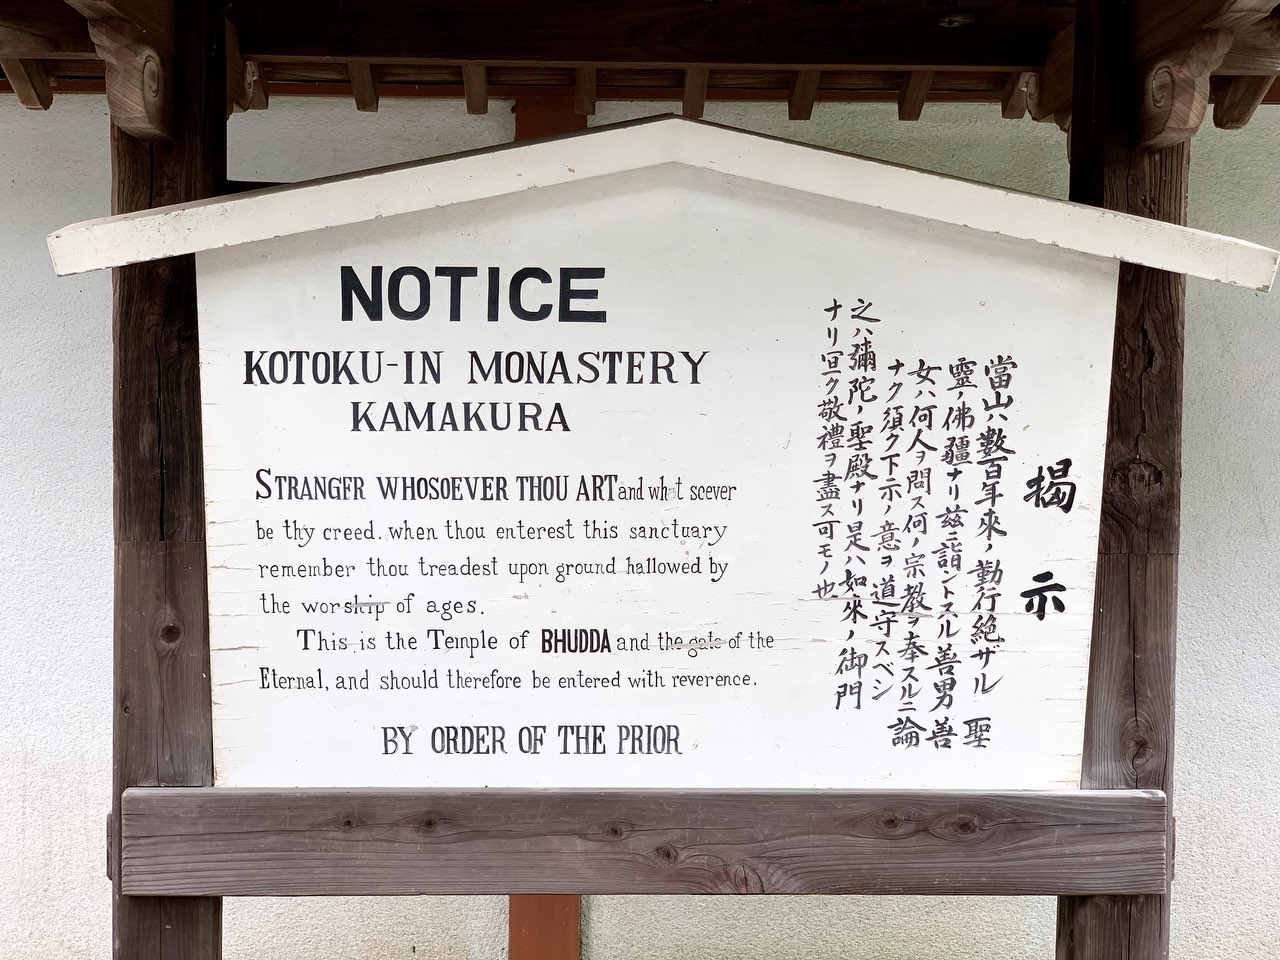 NOTICE
KOTOKU-IN MONASTERY
KAMAKURA
STRANGER WHOSOEVER THOU ART and what soever
be thy creed. when thou enterest this sanctuary
remember thou treadest upon ground hallowed by
the worship of ages.
This is the Temple of BHUDDA and the gate of the
Eternal, and should therefore be entered with reverence.
BY ORDER OF THE PRIOR
掲示
當山ハ數百年來ノ勤行絶ザル聖
靈ノ佛疆ナリ茲ニ詣ントスル善男善
女ハ何人ヲ問ス何ノ宗教ヲ奉スルニ論
ナク須ク下示ノ意ヲ遵守スベシ
之ハ彌陀ノ聖殿ナリ是ハ如來ノ御門
ナリ宜ク敬禮ヲ盡ス可モノ也